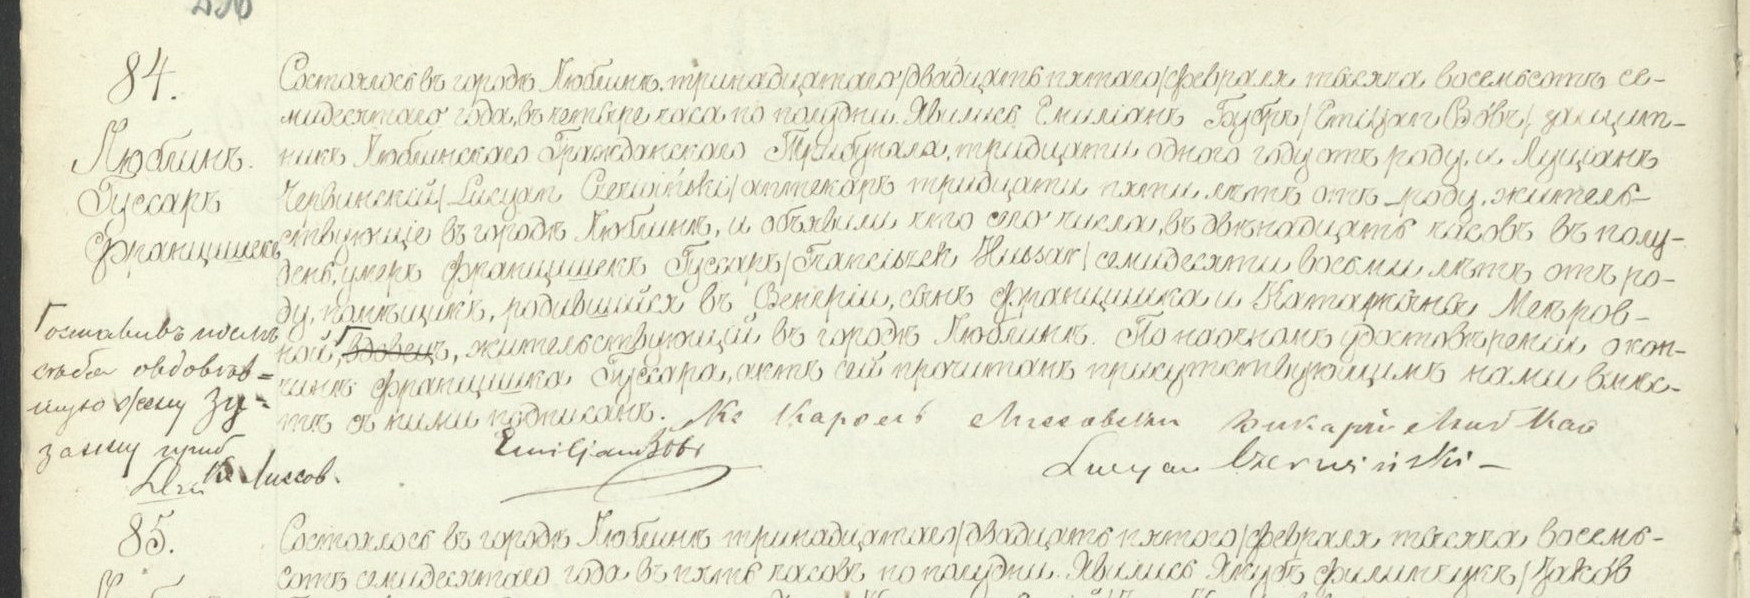 84.
Люблинъ.
Гуссаръ
Францишекъ
Состоялось въ городѣ Люблинѣ, тринадцатаго /двадцать пятаго/ февраля тысяча восемьсотъ се-
мидесятаго года, въ четыре часа по полудни. Явились Емиліанъ Бубръ /Emiljan Bóbr/, защит-
никъ Люблинскаго Гражданскаго Трибунала, тридцати одного году отъ роду, и Луціанъ
Червинскій /Lucyan Czerwiński/ аптекарь тридцати пяти лѣтъ отъ роду, житель-
ствующіе въ городѣ Люблинѣ, и объявили что сего числа, въ двѣнадцать часовъ въ полу-
день, умеръ Францишекъ Гуссаръ /Franciszek Hussar/ семидесяти восьми лѣтъ отъ ро-
ду, помѣщикъ, родившійся въ Венгріи, сынъ Францишка и Катаржины
ной, вдовецъ, жительствующій въ городѣ Люблинѣ. По наочномъ удостовѣреніи о кон-
чинѣ Францишка Гуссара, актъ сей прочитанъ присутствующимъ нами вмѣс-
тѣ съ ними подписанъ. Кс Кароль Лиссовскій викарій
Emiljan Bóbr
Lucyan Czerwiński
Оставивъ послѣ
себя овдовѣв=
шую жену Зу=
занну
К. Лиссов.
85.
Состоялось въ городѣ Люблинѣ тринадцатаго /двадцать пятаго/ февраля тысяча восемь-
сотъ семидесятаго года въ пять часовъ по полудни. Явились Якубъ